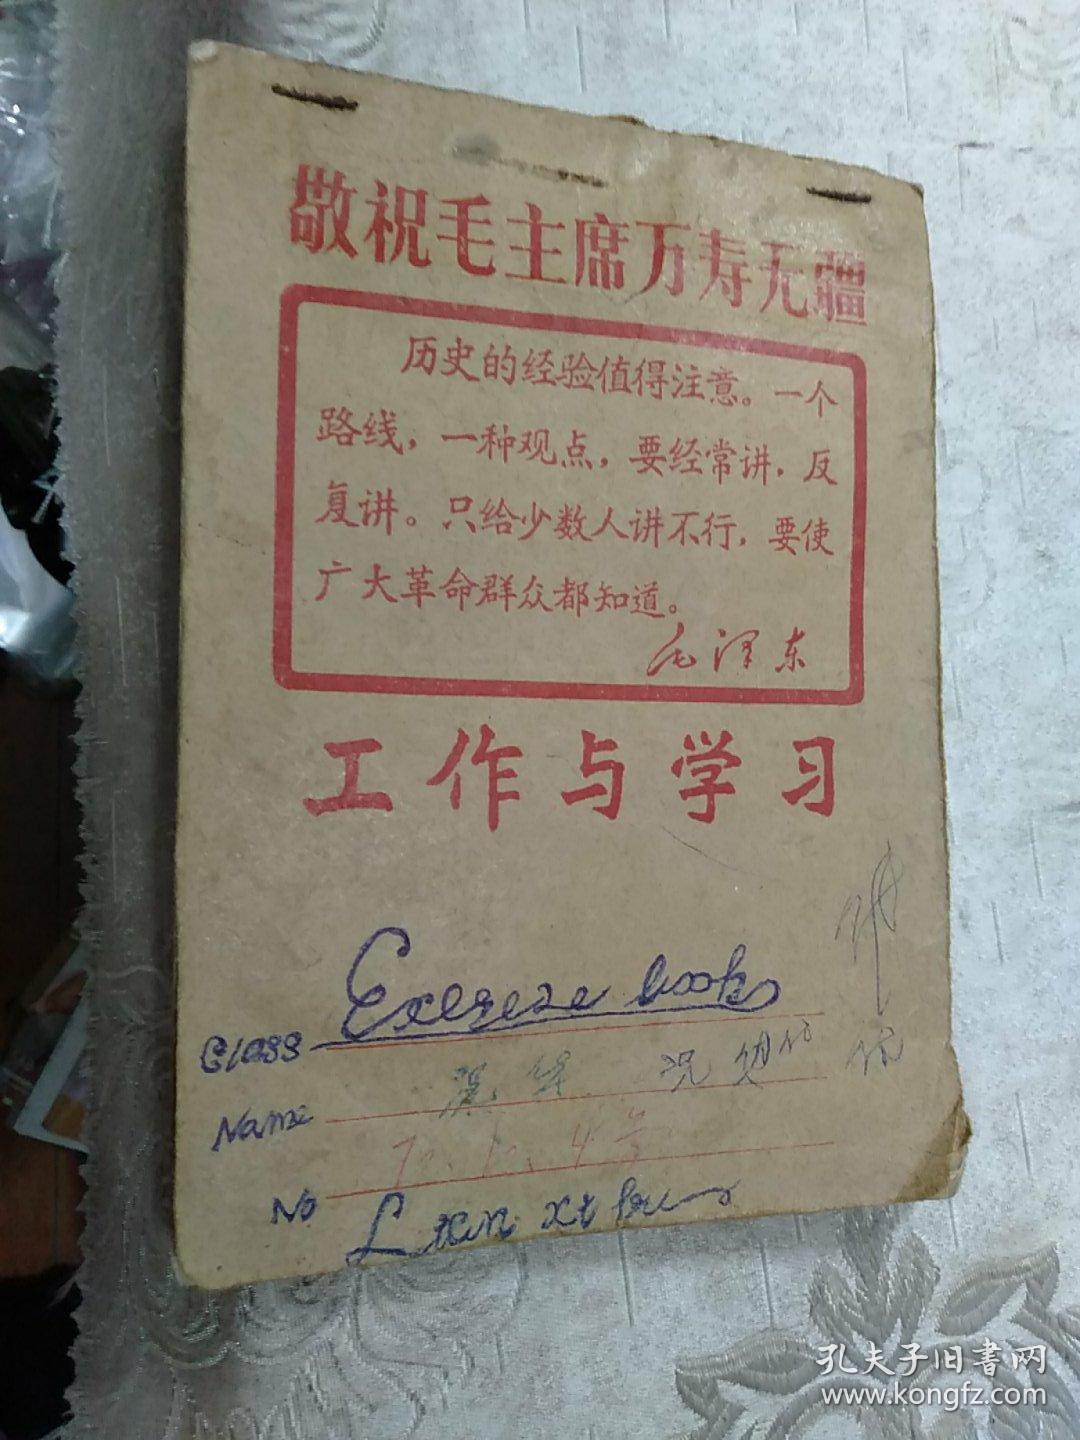 敬祝毛主席万寿无疆
历史的经验值得注意。一个
路线，一种观点，要经常讲，反
复讲。只给少数人讲不行，要使
广大革命群众都知道。
毛泽东
工作与学习
Exerseze book
Class
Name
No
孔夫子旧书网
www.kongfz.com